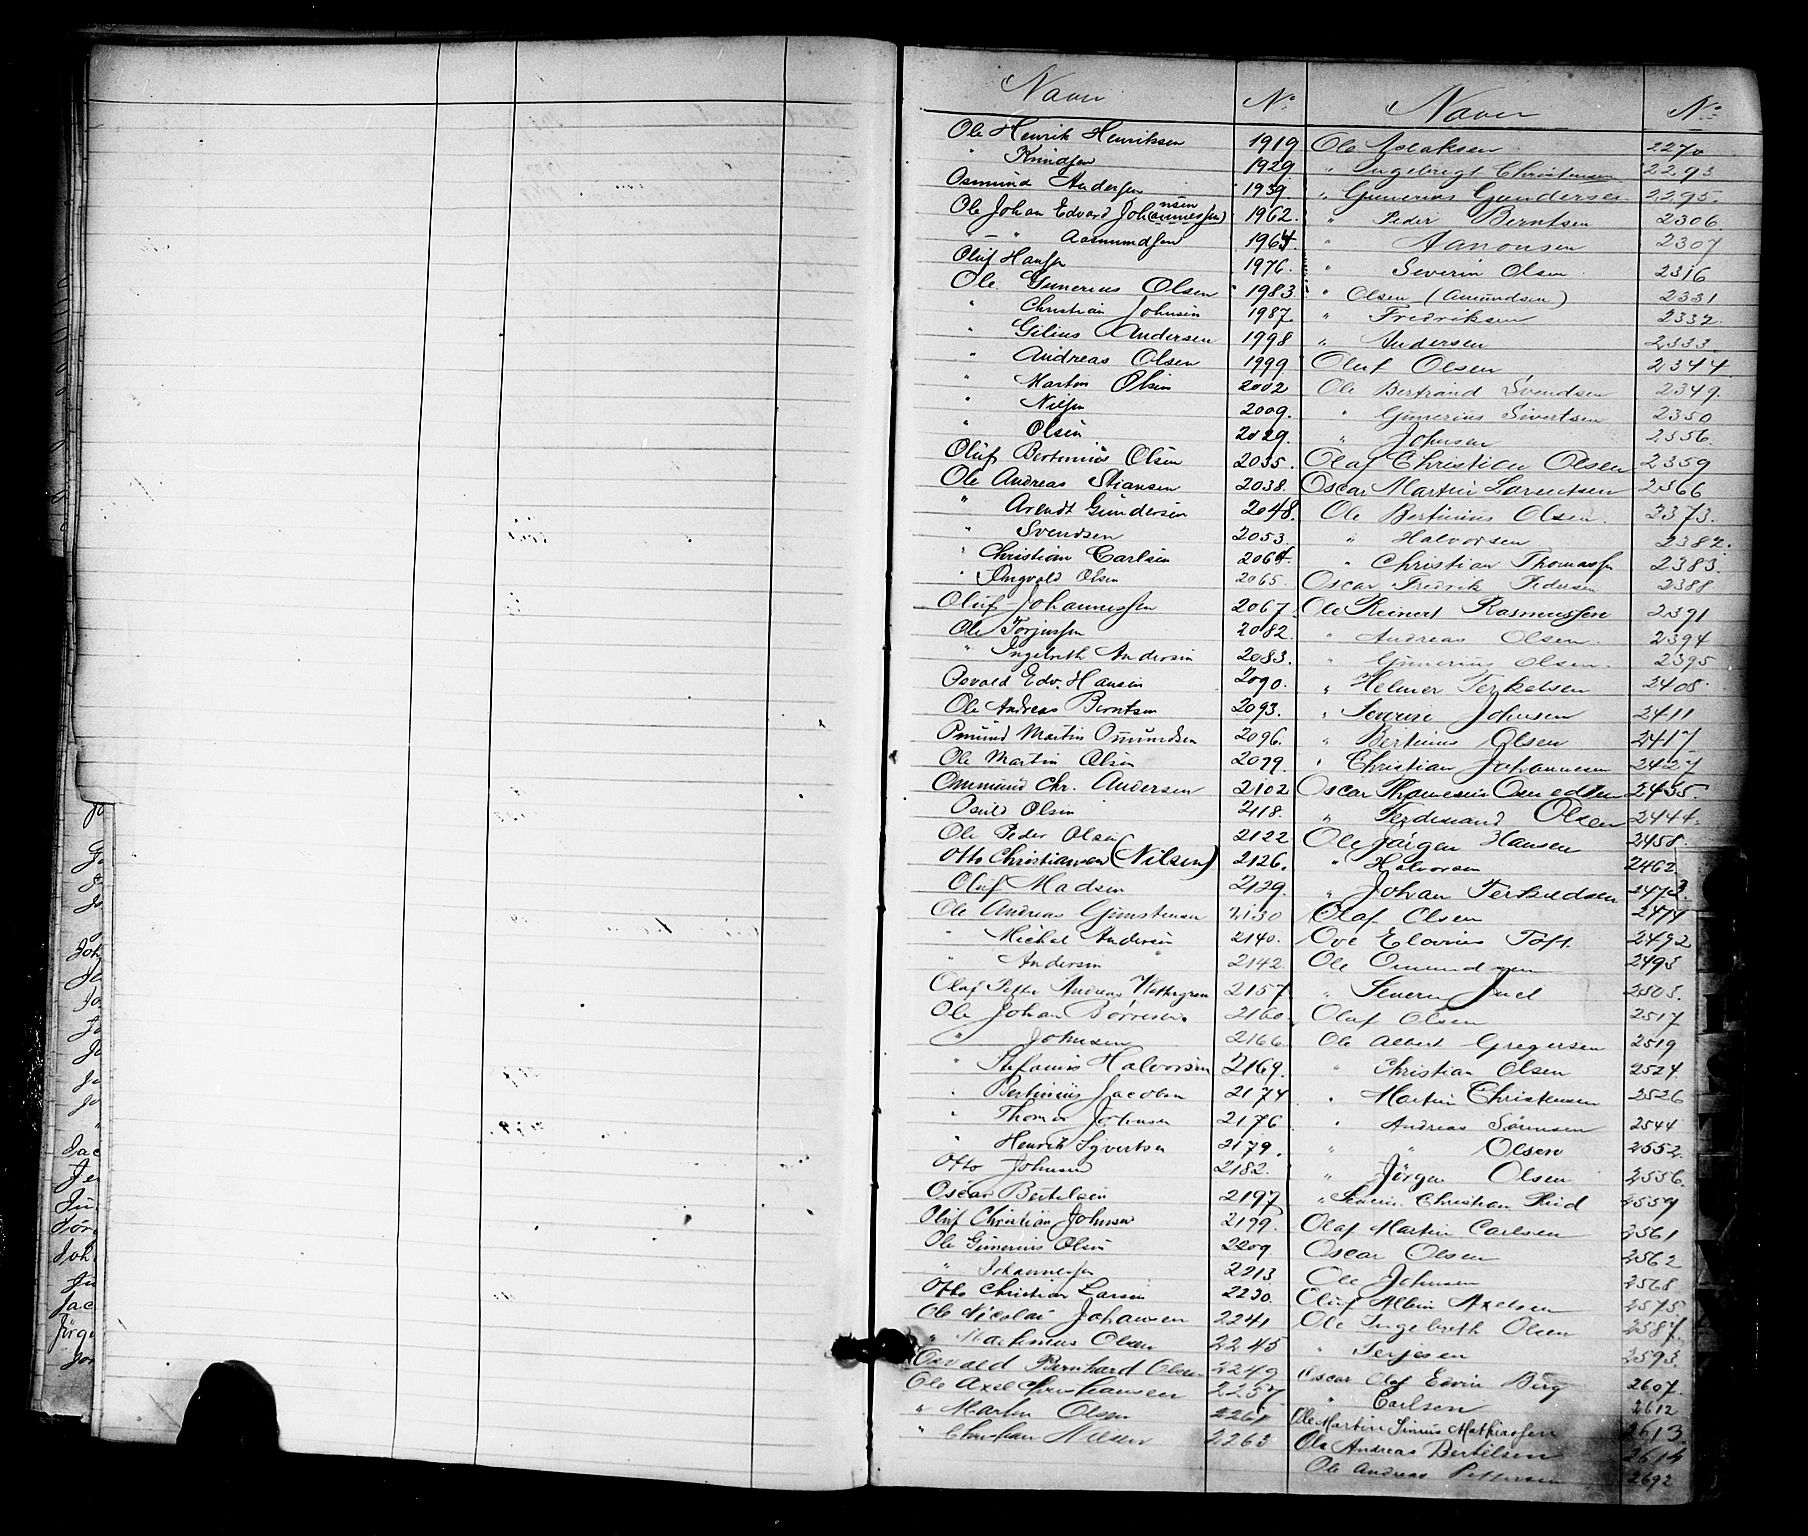 Navn No
Ole Henrik Henriksen 1919
" Knudsen 1929
Osmund Andersen 1939
Ole Johan Edvard Joh(annessen)nsen 1962.
" " Aasmundsen 1964.
Oluf Hansen 1976.
Ole Gunerius Olsen 1983
" Christian Johnsen 1987
" Gilius Andersen 1998
" Andreas Olsen 1999
" Martin Olsen 2002
" Nilsen 2009.
" Olsen 2029.
Oluf Bertinius Olsen 2035.
Ole Andreas Stiansen 2038.
" Arendt Gundersen 2048.
" Svendsen 2053.
" Christian Carlsen 2064.
" Ingvald Olsen 2065.
Oluf Johannessen 2067
Ole Torjussen 2082.
" Ingebreth Andersen 2083.
Osvald Edv. Hansen 2090.
Ole Andreas Berntsen 2093.
Omund Martin Omundsen 2096.
Ole Martin Olsen 2099.
Ommund Chr. Andersen 2102
Osuld Olsen 2118.
Ole Peder Olsen 2122
Otto Christiansen (Nilsen) 2126.
Oluf Madsen 2129.
Ole Andreas Gunstensen 2130
" Michel Andersen 2140.
" Andersen 2142.
Olaf Petter Andreas 2157.
Ole Johan Børresen. 2160.
" Johnsen 2166
" Stefanus Halvorsen 2169.
" Bertinius Jacobsen 2174
" Thomas Johnsen 2176
" Henrik Syvertsen 2179.
Otto Johnsen 2182.
Oscar Bertelsen 2197
Oluf Christian Johnsen 2199.
Ole Gunerius Olsen 2209.
" Johannessen 2213
Otto Christian Larsen 2230.
Ole Nicolai Johansen 2241
" Martinius Olsen 2245
Osvald Bernhard Olsen 2249
Ole Axel Christiansen 2257
" Martin Olsen 2261
" Christian Nilsen 2263
Navn No
Ole Isaksen 2270
" Ingebrigt Christensen 2293
" Gunerius Gundersen 2295.
" Peder Berntsen 2306
" Aanonsen 2307
" Severin Olsen 2316
" Olsen (Amundsen) 2331
" Fredriksen 2332.
" Andersen 2333.
Oluf Olsen 2344
Ole Bertrand Svendsen 2349.
" Gunerius Sivertsen 2350
" Johnsen 2356.
Olaf Christian Olsen 2359
Oscar Martin Lorentsen 2366
Ole Bertinius Olsen. 2373.
" Halvorsen 2382.
" Christian Thomassen 2383.
Oscar Fredrik Pedersen 2388.
Ole Reinert Rasmussen 2391
" Andreas Olsen. 2394
" Gunerius Olsen. 2395
" Helmer Terkelsen 2408.
" Severin Johnsen 2411
" Bertinius Olsen 2417
" Christian Johannesen 2427
Oscar 2435.
" Ferdinand Olsen 2444.
Ole Jørgen Hansen 2458.
" Halvorsen 2462.
" Johan Terkildsen 2473.
Olaf Olsen 2474
Ove Elovius Toft. 2492
Ole Omundsen 2493
" Severin Juel 2505.
Olaf Olsen 2517
Ole Albert Gregersen 2519
" Christian Olsen 2524.
" Martin Christensen 2526
" Andreas Sørensen 2544
" " Olsen 2552.
" Jørgen Olsen 2556.
" Severin Christian 2559
Olaf Martin Carlsen 2561
Oscar Olsen 2562
Ole Johnsen 2568
Oluf Albin Axelsen 2575
Ole Ingebreth Olsen 2587.
" Terjesen 2593.
Oscar Olaf Edvin Berg 2607.
" Carlsen 2612
Ole Martin Sinius Mathiassen 2613
Ole Andreas Bertelsen 2614
Ole Andreas Pettersen 2692